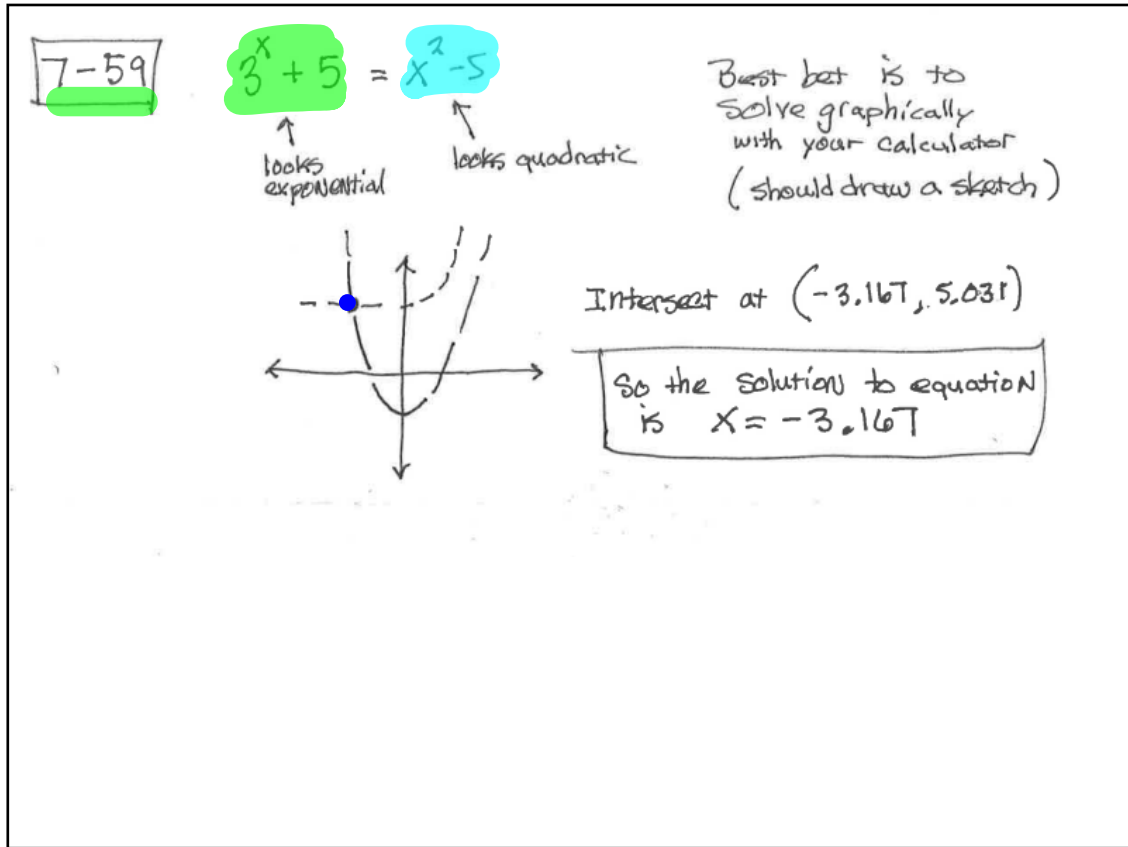 7-59
3^x + 5 = x^2 - 5
looks exponential
looks quadratic
Best bet is to
solve graphically
with your calculator
(should draw a sketch)
Intersect at (-3.167, 5.031)
So the solution to equation
is x = -3.167